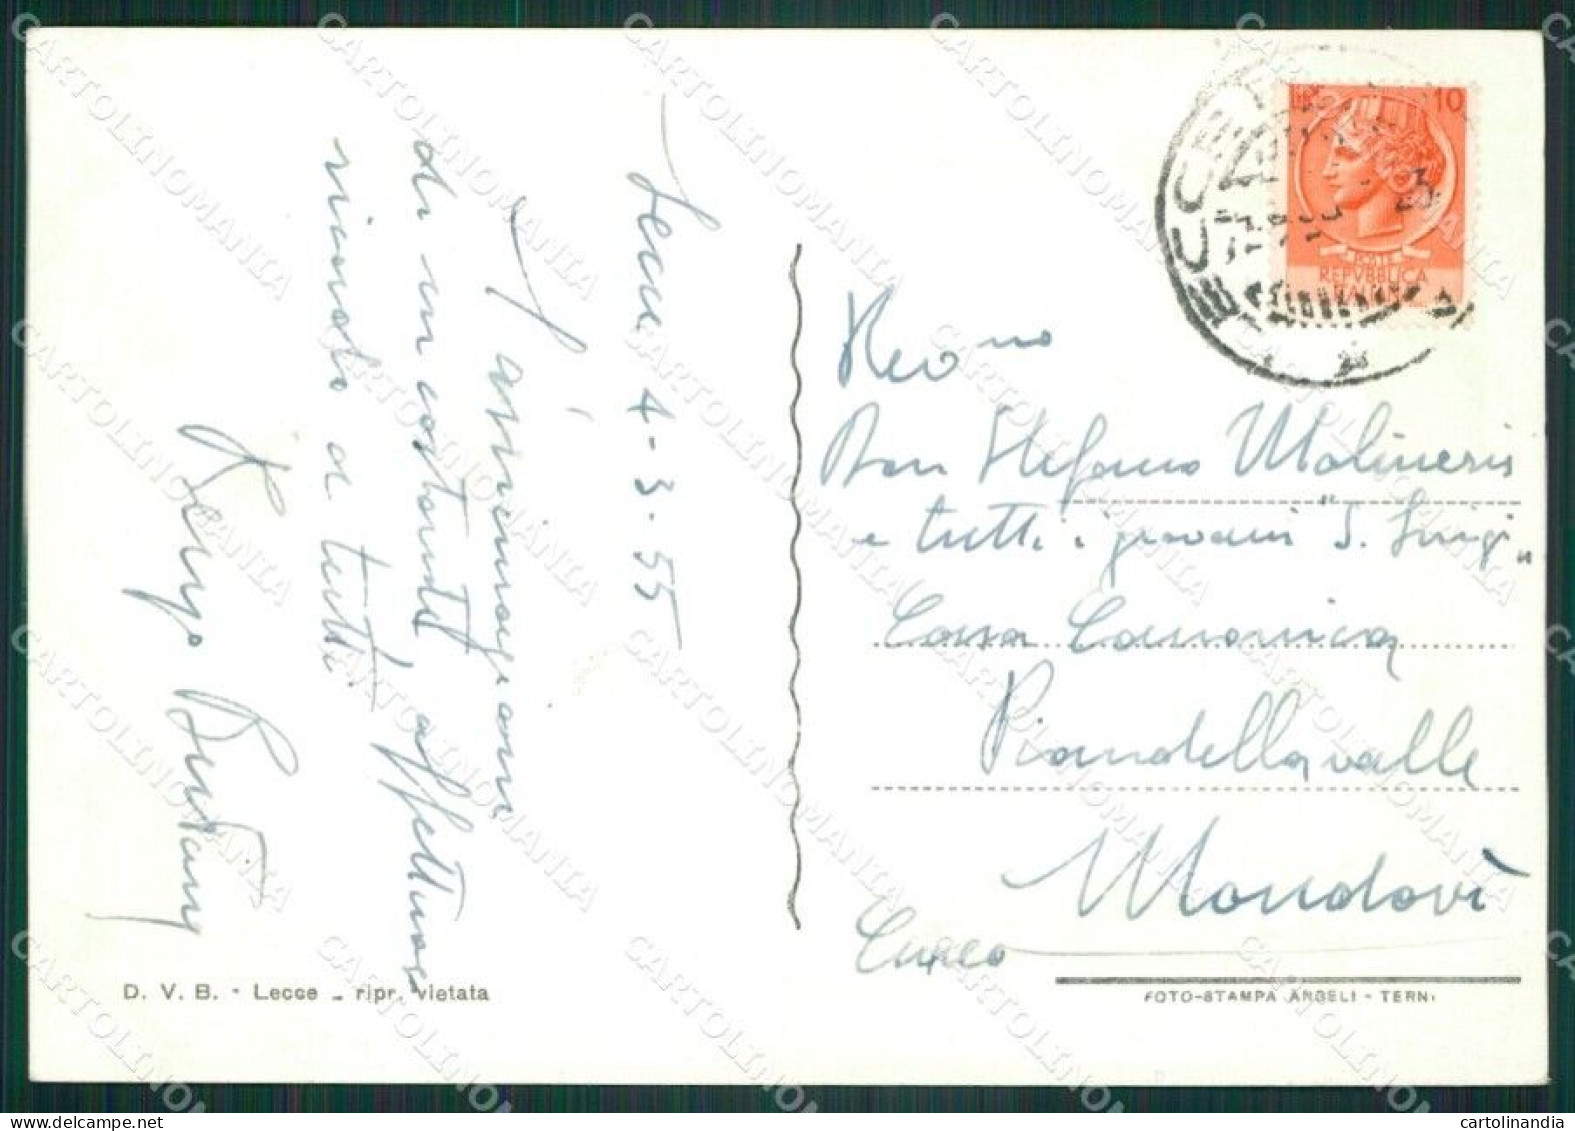 Lecce 4-3-55
di un costante, affettuoso
ricordo a tutti.
Renzo
D. V. B. - Lecce - ripr. vietata
10
POSTE
REPVBBLICA
ITALIANA
LECCE
Rev.mo
Don Stefano Molineris
e tutti i giovani "S. Luigi"
Casa Canonica
Piandellavalle
Mondovì
Cuneo
FOTO-STAMPA ANGELI - TERNI
CARTOLINOMANIA
cartolinandia